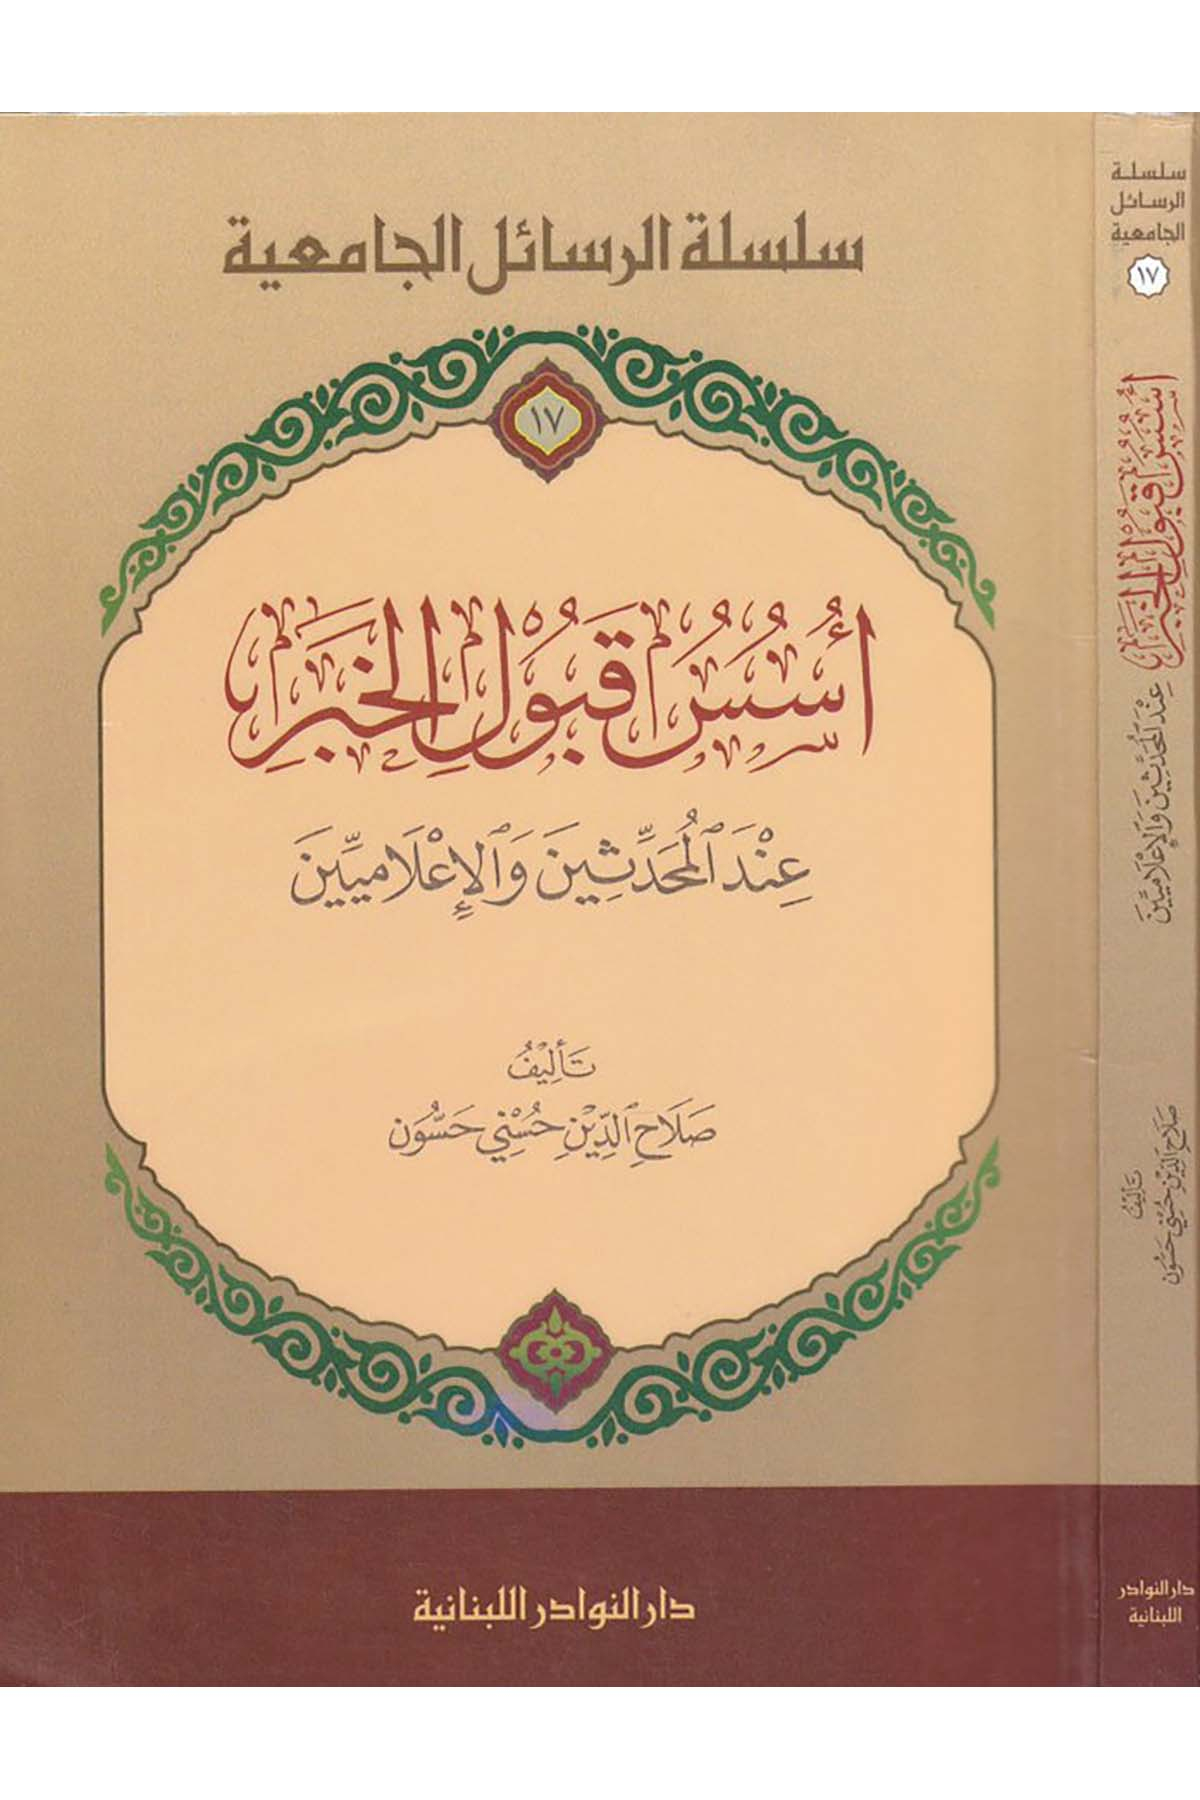 سلسلة الرسائل الجامعية
١٧
أُسُسُ قَبُولِ الخَبَرِ
عِنْدَ ٱلْمُحَدِّثِينَ وَٱلْإِعْلَامِيِّينَ
تَأْلِيْفُ
صَلَاحِ ٱلدِّيْنِ حُسْنِي حَسُّون
دار النوادر اللبنانية
سلسلة
الرسائل
الجامعية
١٧
أُسُسُ قَبُولِ الخَبَرِ
عِنْدَ ٱلْمُحَدِّثِينَ وَٱلْإِعْلَامِيِّينَ
تَأْلِيْفُ
صَلَاحِ ٱلدِّيْنِ حُسْنِي حَسُّون
دار النوادر
اللبنانية